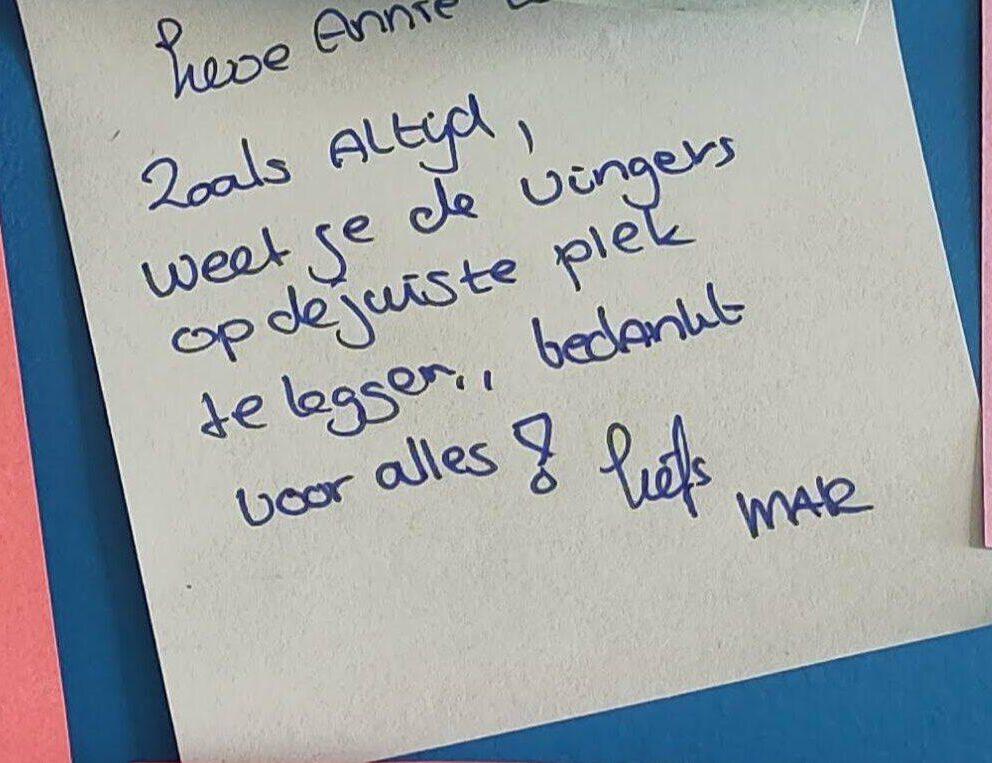 Lieve Annie
Zoals Altijd,
weet je de vingers
op de juiste plek
te leggen.., bedankt
voor alles! liefs
MAR